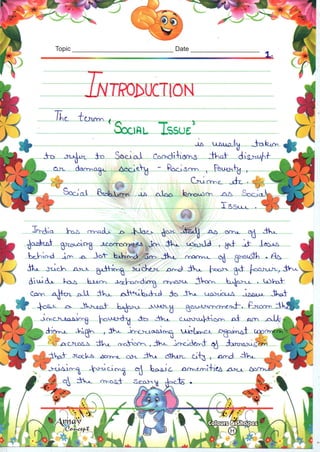 Topic Date
1
INTRODUCTION
The term 'SOCIAL ISSUE'
is usually taken
to refer to Social Conditions that disrupt
or damage society - Racism, Poverty,
Crime etc.
Social Problem is also known as Social
Issue.
India has made a place for itself as one of the
fastest growing economies in the world, yet it loses
behind in a lot behind in the name of growth. As
the rich are getting richer and the poor get poorer, the
divide has been expanding more than before. What
can after all the attributed to the various issue that
pose a threat before every government. From the
increasing poverty to the curruption at an all
time high, the increasing violence against women
across the nation, the incident of terrorism
that rocks some or the other city, and the
rising pricing of basic amenities are some
of the most scary facts.
Arnav Concept
Colours & Shapes